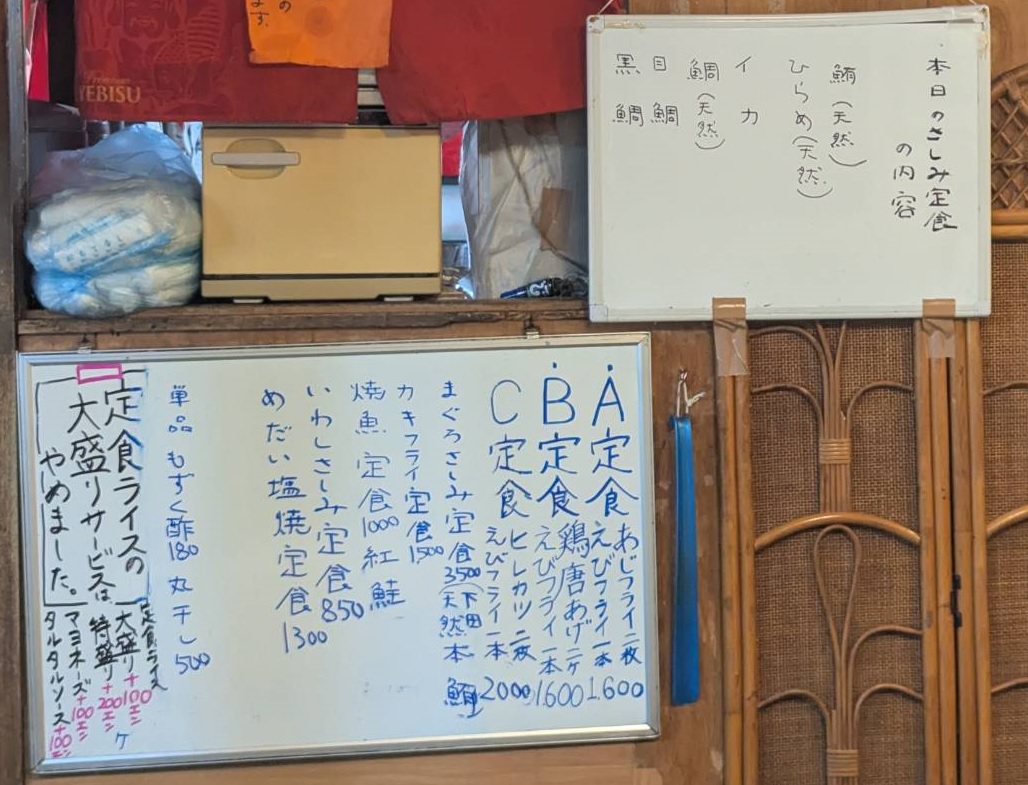 の
ます。
YEBISU
本日のさしみ定食
の内容
鮪(天然)
ひらめ(天然)
イカ
鯛(天然)
目鯛
黒鯛
A定食 あじフライ二枚 えびフライ一本 1.600
B定食 鶏唐あげ二ケ えびフライ一本 1.600
C定食 ヒレカツ二枚 えびフライ一本 2000
まぐろさしみ定食3500(下田天然本鮪)
カキフライ定食1500
焼魚定食1000 紅鮭
いわしさしみ定食850
めだい塩焼定食1300
単品 もずく酢180 丸干し500
定食ライスの
大盛りサービスは、
やめました。
定食ライス
大盛り+100エン
特盛り+200エン
マヨネーズ+100エン
タルタルソース+100エン